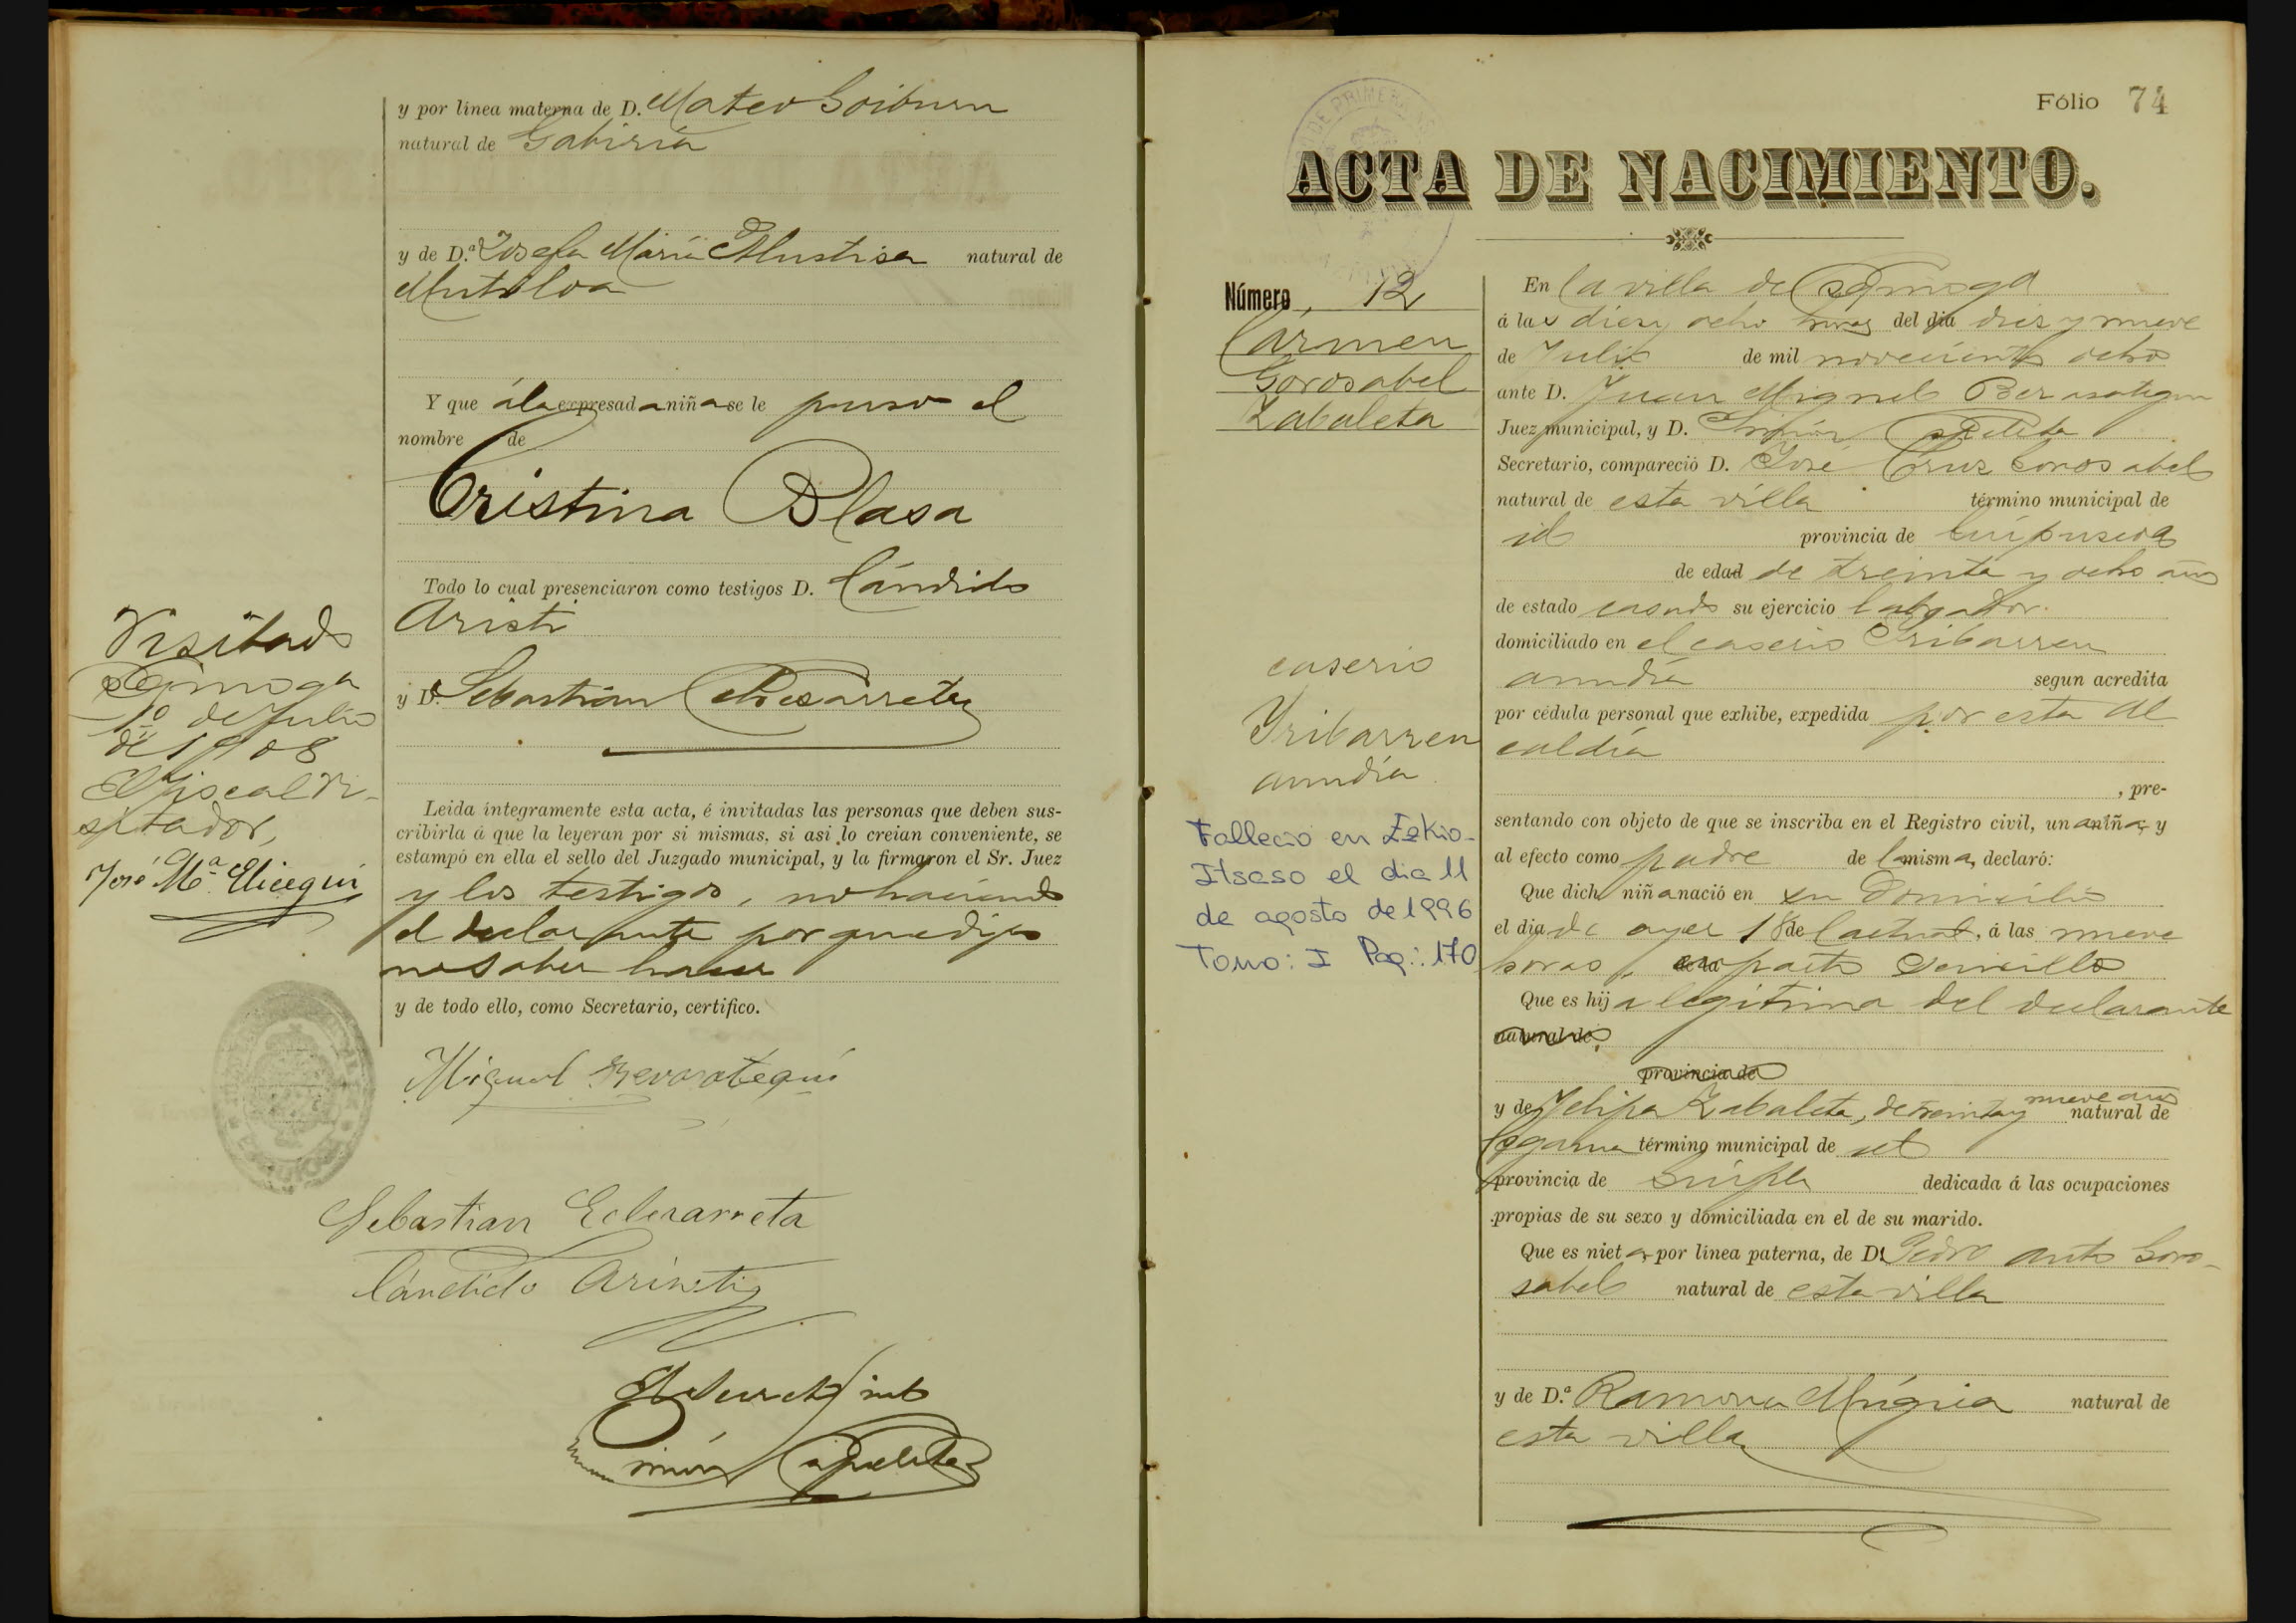 y por línea materna de D. Mateo Goiburu
natural de Gabiria
y de D.ª Josefa María Mustisa natural de
Mutiloa
Y que á la expresada niña se le puso el
nombre de
Cristina Blasa
Todo lo cual presenciaron como testigos D. Cándido
Aristi
y D. Sebastián Echezarreta
Leida íntegramente esta acta, é invitadas las personas que deben sus-
cribirla á que la leyeran por si mismas, si asi lo creían conveniente, se
estampó en ella el sello del Juzgado municipal, y la firmaron el Sr. Juez
y los testigos, no haciendo
el declarante por que dijo
no saber hacer
y de todo ello, como Secretario, certifico.
Visitado
Ezquioga
1º de Julio
de 1908
El Fiscal Vi-
sitador,
José Mª Elicegui
Miguel Berasategui
Sebastian Echezarreta
Cándido Aristi
Fólio 74
ACTA DE NACIMIENTO.
Número 12
Carmen
Gorosabel
Zabaleta
caserio
Yribarren
aundía
Fallecio en Ezkio-
Itsaso el dia 11
de agosto de 1996
Tomo: I Pag.: 170
En la villa de Ezquioga
á las diez y ocho horas del día diez y nueve
de Julio de mil novecientos ocho
ante D. Juan Miguel Berasategui
Juez municipal, y D. Simón Apeleta
Secretario, compareció D. José Cruz Gorosabel
natural de esta villa término municipal de
id provincia de Guipuzcoa
de edad de treinta y ocho años
de estado casado su ejercicio labrador.
domiciliado en el caserio Yribarren
aundía segun acredita
por cédula personal que exhibe, expedida por esta Al
caldía
, pre-
sentando con objeto de que se inscriba en el Registro civil, una niña y
al efecto como padre de la misma, declaró:
Que dicha niña nació en su domicilio
el dia de ayer 18 del actual, á las nueve
horas, de la parto sencillo
Que es hija legítima del declarante
natural de
provincia de
y de Felipa Zabaleta, de treinta y nueve años natural de
Cegama término municipal de id
provincia de Guipª dedicada á las ocupaciones
propias de su sexo y domiciliada en el de su marido.
Que es nieta por línea paterna, de D. Pedro Antº Goro-
sabel natural de esta villa
y de D.ª Ramona Múgica natural de
esta villa